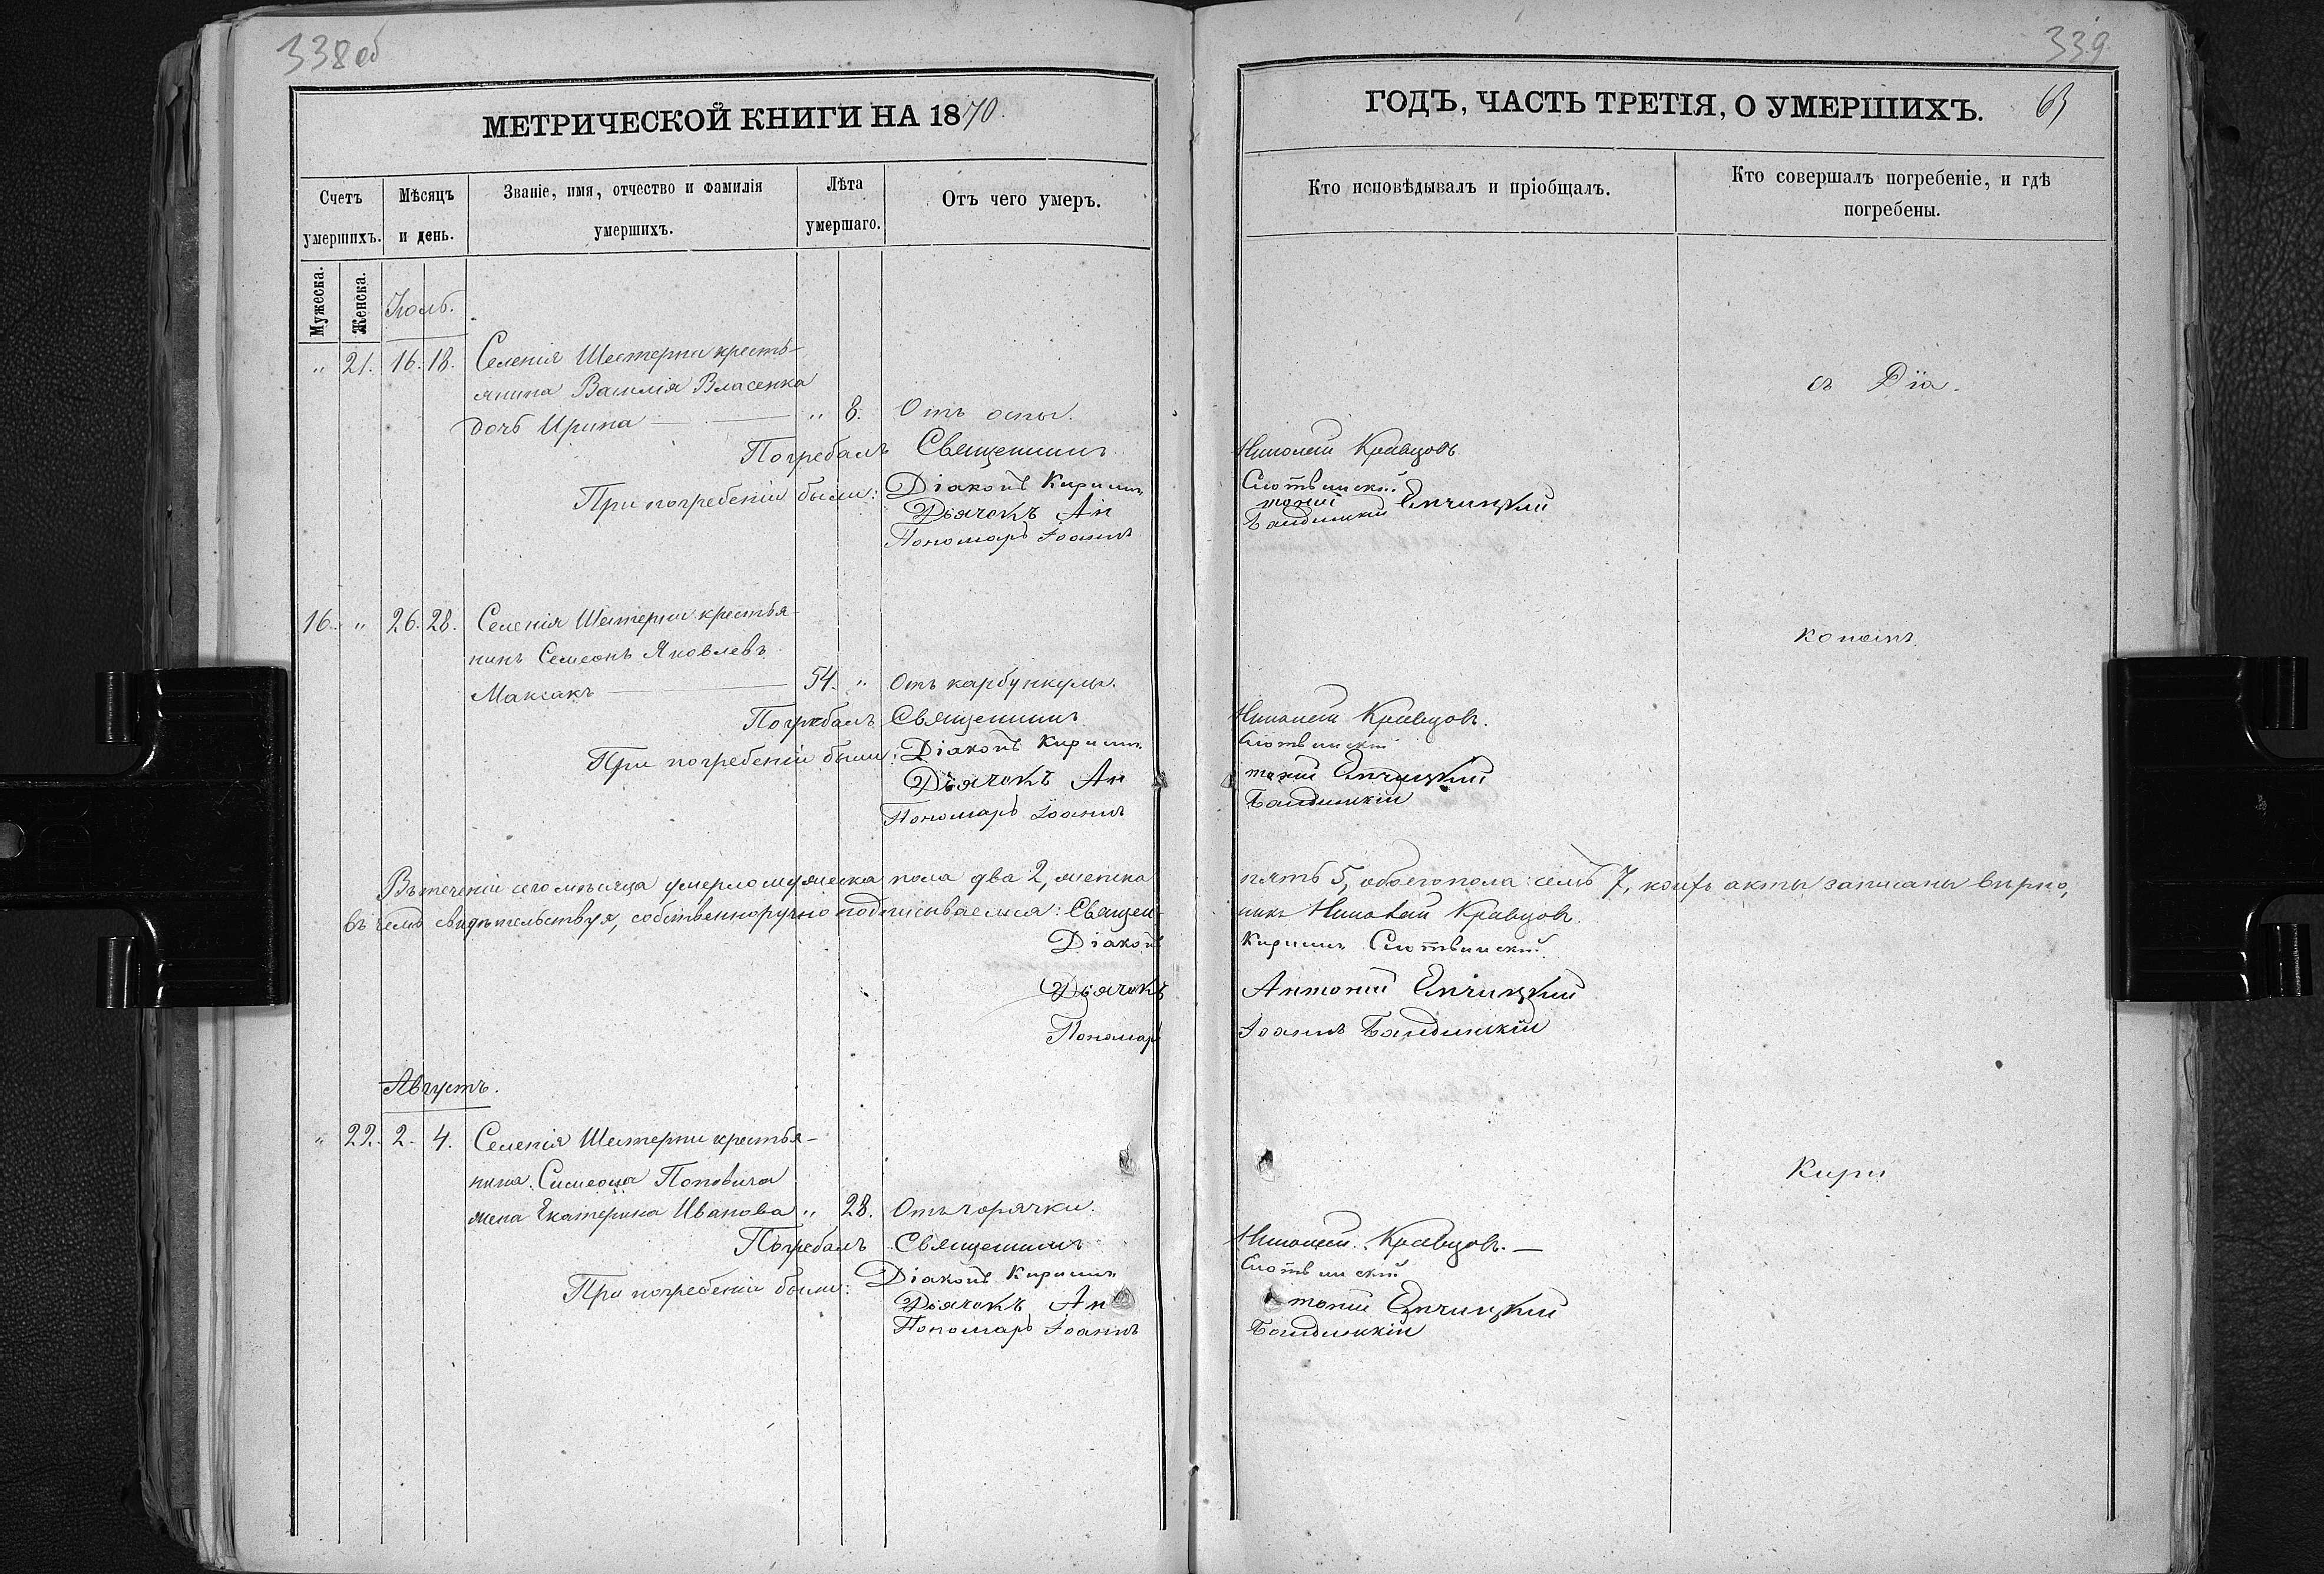 338 об
МЕТРИЧЕСКОЙ КНИГИ НА 1870.
Счетъ умершихъ.
Мѣсяцъ и день.
Званіе, имя, отчество и фамилія умершихъ.
Лѣта умершаго.
Отъ чего умеръ.
Мужеска.
Женска.
Іюль.
" 21. 16. 18. Селенія Шестерни кресть-
янина Василія Власенка
дочь Ирина — " 8. Отъ оспы.
Погребалъ Священникъ
При погребеніи были: Діаконъ Кириллъ
Дьячокъ Ан
Пономарь Іоаннъ
16. " 26. 28. Селенія Шестерни крестья-
нинъ Семеонъ Яковлевъ
Максакъ — 54. " Отъ карбункула.
Погребалъ Священникъ
При погребеніи были: Діаконъ Кириллъ
Дьячокъ Ан
Пономарь Іоаннъ
Въ теченіи сего мѣсяца умерло мужеска пола два 2, женска
въ чемъ свидѣтельствуя, собственноручно подписываемся: Священ-
Діаконъ
Дьячокъ
Пономарь
Августъ.
" 22. 2. 4. Селенія Шестерни крестья-
нина Симеона Поповича
жена Екатерина Иванова " 28. Отъ горячки.
Погребалъ Священникъ
При погребеніи были: Діаконъ Кириллъ
Дьячокъ Ан
Пономарь Іоаннъ
339
ГОДЪ, ЧАСТЬ ТРЕТІЯ, О УМЕРШИХЪ. 63
Кто исповѣдывалъ и пріобщалъ.
Кто совершалъ погребеніе, и гдѣ погребены.
съ Діа
Николай Кравцовъ
Слотвинскій
тоній
Бандинскій
конъ
Николай Кравцовъ.
Слотвинскій
тоній
Бандинскій
пять 5, обоего пола семь 7, коихъ акты записаны вѣрно,
никъ Николай Кравцовъ.
Кириллъ Слотвинскій.
Антоній
Іоаннъ Бандинскій
Кири
Николай Кравцовъ. —
Слотвинскій
тоній
Бандинскій